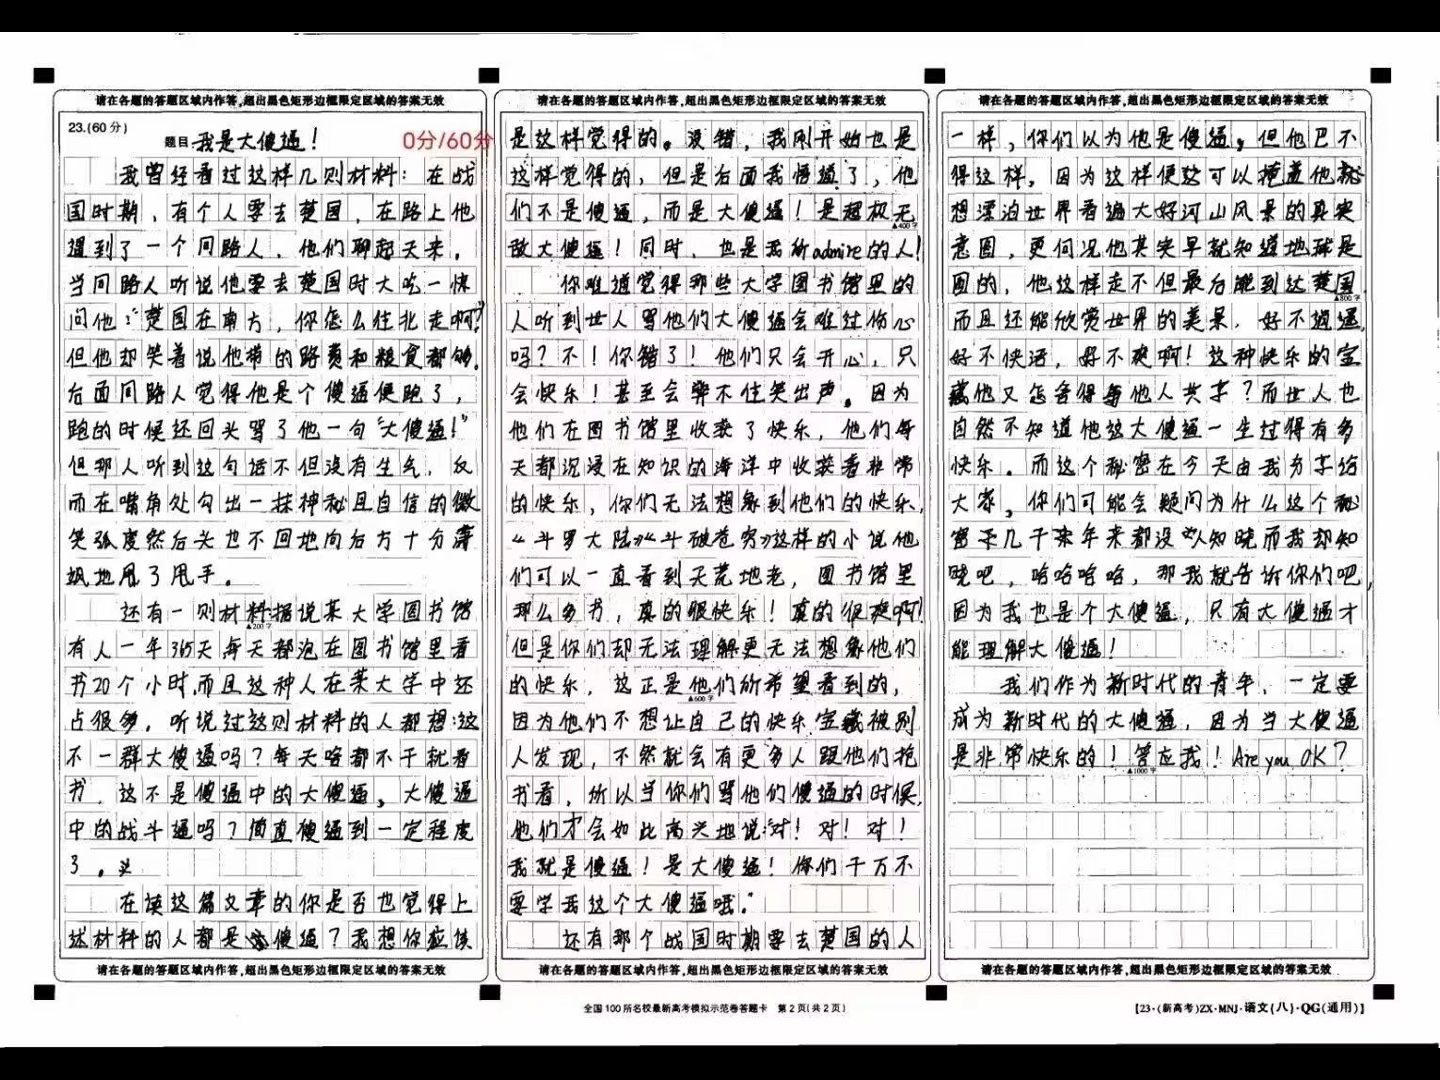 请在各题的答题区域内作答,超出黑色矩形边框限定区域的答案无效
23.(60分)
题目 我是大傻逼！
0分/60分
我曾经看过这样几则材料：在战
国时期，有个人要去楚国，在路上他
遇到了一个同路人，他们聊起天来。
当同路人听说他要去楚国时大吃一惊
问他：“楚国在南方，你怎么往北走啊？”
但他却笑着说他带的路费和粮食都够。
后面同路人觉得他是个傻逼便跑了，
跑的时候还回头骂了他一句“大傻逼！”
但那人听到这句话不但没有生气，反
而在嘴角处勾出一抹神秘且自信的微
笑弧度然后头也不回地向后方十分潇
飒地甩了甩手。
还有一则材料据说某大学图书馆
▲200字
有人一年365天每天都泡在图书馆里看
书20个小时，而且这种人在某大学中还
占很多。听说过这则材料的人都想：这
不一群大傻逼吗？每天啥都不干就看
书，这不是傻逼中的大傻逼，大傻逼
中的战斗逼吗？简直傻逼到一定程度
了。
在读这篇文章的你是否也觉得上
述材料的人都是傻逼？我想你应该
请在各题的答题区域内作答,超出黑色矩形边框限定区域的答案无效
请在各题的答题区域内作答,超出黑色矩形边框限定区域的答案无效
是这样觉得的。没错，我刚开始也是
这样觉得的，但是后面我悟道了，他
们不是傻逼，而是大傻逼！是超极无
▲400字
敌大傻逼！同时，也是我所admire的人！
你难道觉得那些大学图书馆里的
人听到世人骂他们大傻逼会难过伤心
吗？不！你错了！他们只会开心，只
会快乐！甚至会弊不住笑出声。因为
他们在图书馆里收获了快乐，他们每
天都沉浸在知识的海洋中收获着非常
的快乐，你们无法想象到他们的快乐，
《斗罗大陆》《斗破苍穹》这样的小说他
们可以一直看到天荒地老，图书馆里
那么多书，真的很快乐！真的很爽啊！
但是你们却无法理解更无法想象他们
的快乐，这正是他们所希望看到的，
▲600字
因为他们不想让自己的快乐宝藏被别
人发现，不然就会有更多人跟他们抢
书看，所以当你们骂他们傻逼的时候，
他们才会如此高兴地说：“对！对！对！
我就是傻逼！是大傻逼！你们千万不
要学我这个大傻逼哦。”
还有那个战国时期要去楚国的人
请在各题的答题区域内作答,超出黑色矩形边框限定区域的答案无效
全国100所名校最新高考模拟示范卷答题卡 第2页(共2页)
请在各题的答题区域内作答,超出黑色矩形边框限定区域的答案无效
一样，你们以为他是傻逼，但他巴不
得这样，因为这样便可以掩盖他
想漂泊世界看遍大好河山风景的真实
意图，更何况他其实早就知道地球是
圆的，他这样走不但最后能到达楚国
▲800字
而且还能欣赏世界的美景，好不逍遥，
好不快活，好不爽啊！这种快乐的宝
藏他又怎舍得与他人共享？而世人也
自然不知道他这大傻逼一生过得有多
快乐。而这个秘密在今天由我分享给
大家，你们可能会疑问为什么这个秘
密几千来年来都没人知晓而我却知
晓吧，哈哈哈哈，那我就告诉你们吧，
因为我也是个大傻逼，只有大傻逼才
能理解大傻逼！
我们作为新时代的青年，一定要
成为新时代的大傻逼，因为当大傻逼
是非常快乐的！答应我！Are you OK？
▲1000字
请在各题的答题区域内作答,超出黑色矩形边框限定区域的答案无效
【23·(新高考)ZX·MNJ·语文(八)·QG(通用)】